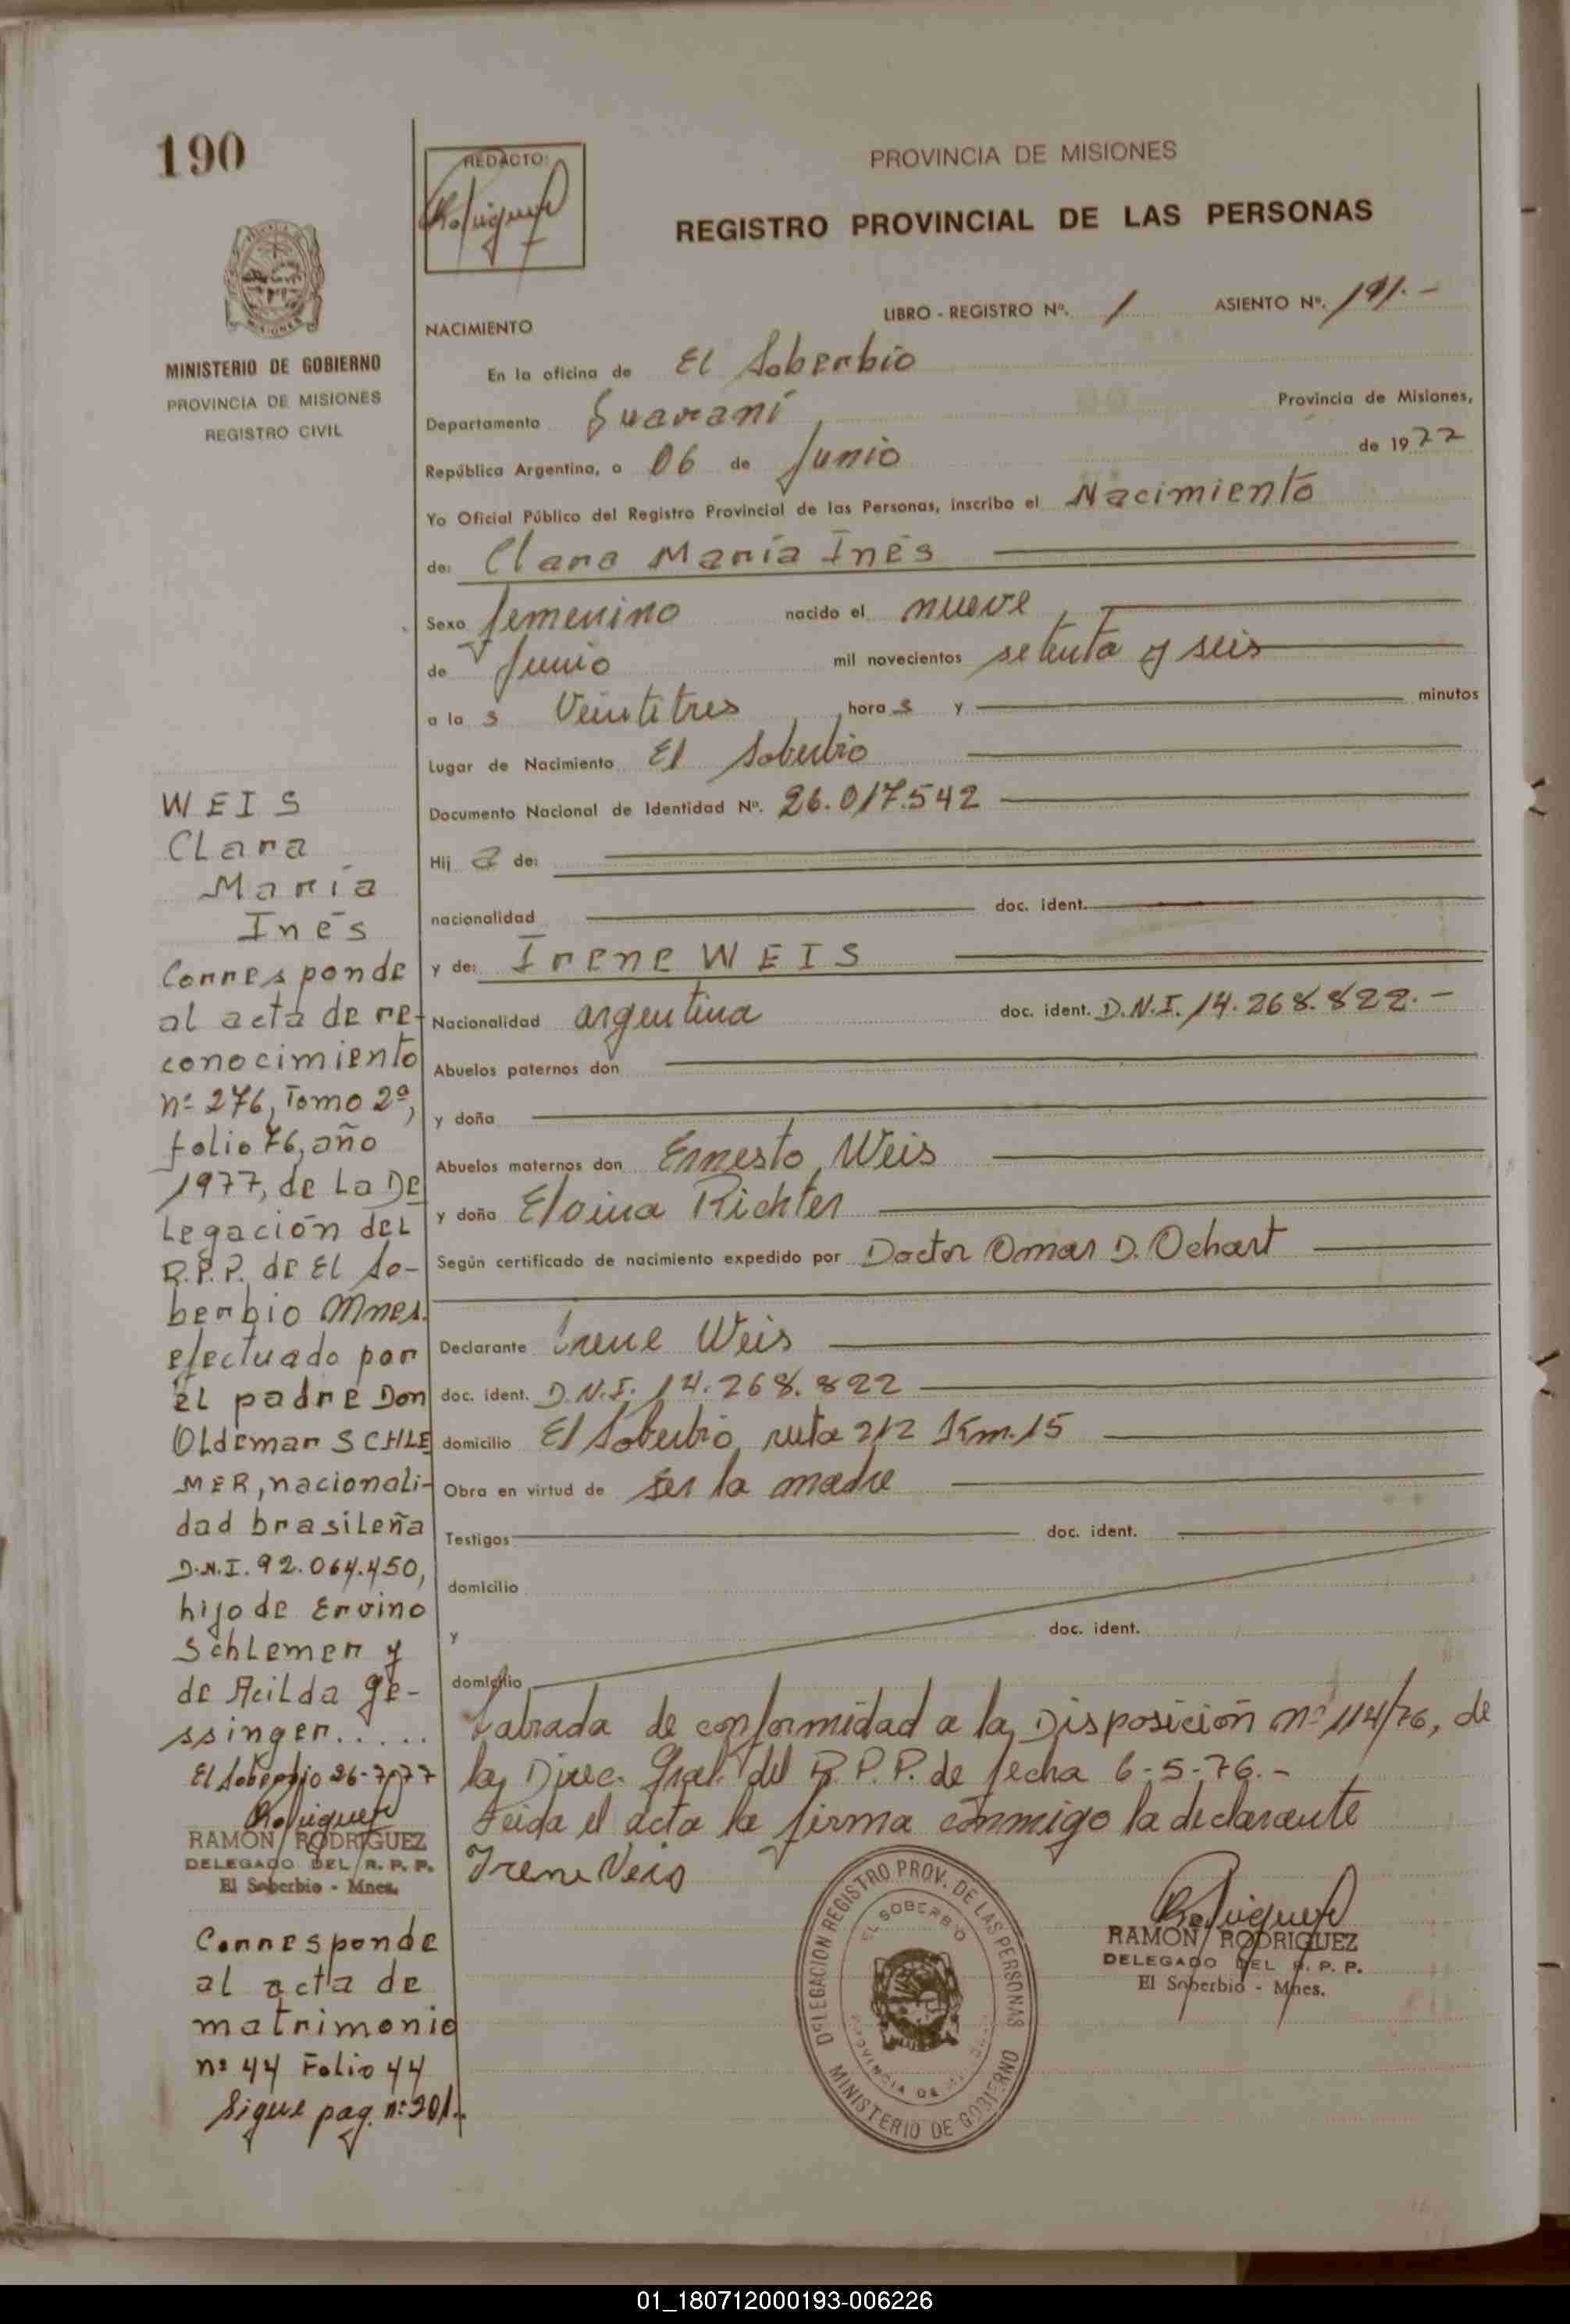 190
REDACTO:
PROVINCIA DE MISIONES
REGISTRO PROVINCIAL DE LAS PERSONAS
MINISTERIO DE GOBIERNO
PROVINCIA DE MISIONES
REGISTRO CIVIL
LIBRO - REGISTRO Nº. 1 ASIENTO Nº. 191.-
NACIMIENTO
En la oficina de El Soberbio
Departamento Guaraní Provincia de Misiones,
República Argentina, a 06 de Junio de 1977
Yo Oficial Público del Registro Provincial de las Personas, inscribo el Nacimiento
de: Clara María Inés
Sexo femenino nacido el nueve
de Junio mil novecientos setenta y seis
a la s Veintitres hora s y minutos
Lugar de Nacimiento El Soberbio
Documento Nacional de Identidad Nº. 26.017.542
Hij a de:
nacionalidad doc. ident.
y de: Irene WEIS
Nacionalidad argentina doc. ident. D.N.I. 14.268.822.-
Abuelos paternos don
y doña
Abuelos maternos don Ernesto Weis
y doña Eloina Richter
Según certificado de nacimiento expedido por Doctor Omar D. Ochart
Declarante Irene Weis
doc. ident. D.N.I. 14.268.822
domicilio El Soberbio, ruta 212 Km.15
Obra en virtud de ser la madre
Testigos doc. ident.
domicilio
y doc. ident.
domicilio
Labrada de conformidad a la Disposición nº 114/76, de
la Direc. Gral. del R.P.P. de fecha 6-5-76.-
Leida el acta la firma conmigo la declarante
Irene Veis
RAMON RODRIGUEZ
DELEGADO DEL R. P. P.
El Soberbio - Mnes.
DELEGACION REGISTRO PROV. DE LAS PERSONAS
EL SOBERBIO
PROVINCIA DE
MINISTERIO DE GOBIERNO
WEIS
Clara
María
Inés
Corresponde
al acta de re-
conocimiento
nº 276, Tomo 2º,
folio 76, año
1977, de la De
legación del
R.P.P. de El So-
berbio Mnes.
efectuado por
el padre Don
Oldemar SCHLE
MER, nacionali-
dad brasileña
D.N.I. 92.064.450,
hijo de Ervino
Schlemer y
de Acilda Ge-
ssinger.....
El Soberbio 26-7-77
RAMON RODRIGUEZ
DELEGADO DEL R. P. P.
El Soberbio - Mnes.
Corresponde
al acta de
matrimonio
nº 44 Folio 44
Sigue pag. nº 201.
01_180712000193-006226